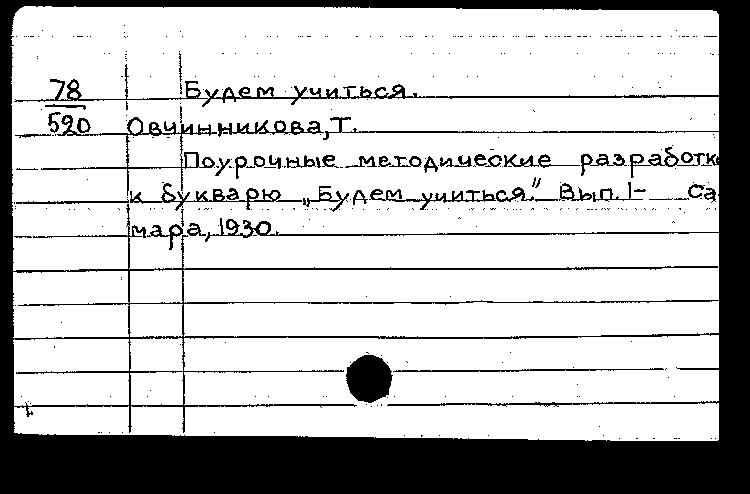 78 Будем учиться.
520 Овчинникова, Т.
Поурочные методические разработк
к букварю „Будем учиться." Вып. I- Са-
мара, 1930.